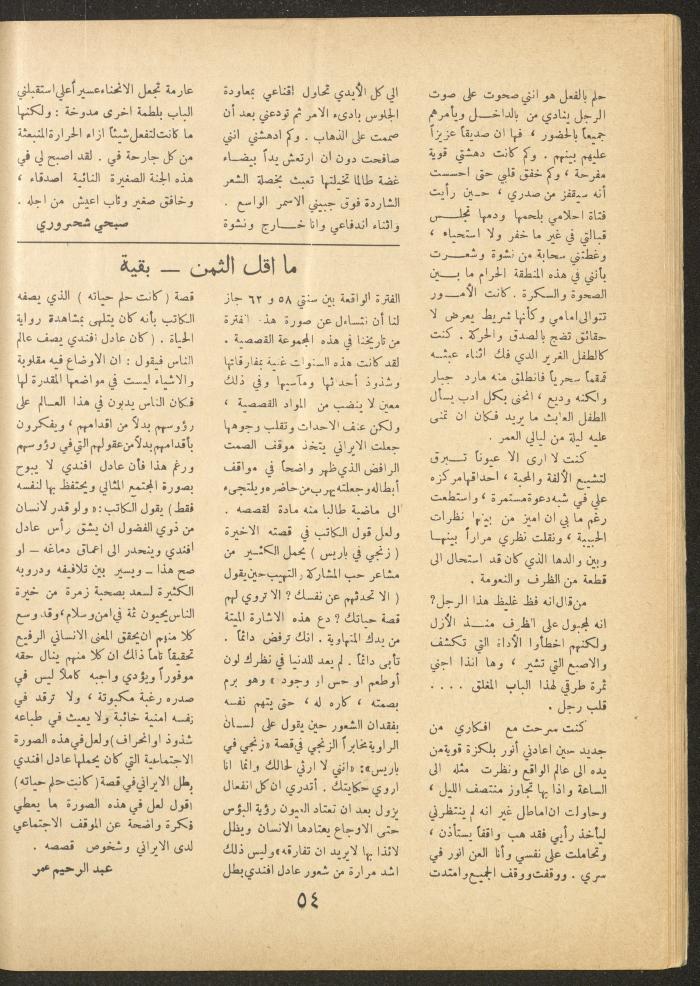 حلم بالفعل هو انني صحوت على صوت
الرجل ينادي من بالداخل ويأمرهم
جميعاً بالحضور ، فها ان صديقاً عزيزاً
عليهم بينهم . وكم كانت دهشتي قوية
مفرحة ، وكم خفق قلبي حتى احسست
أنه سيقفز من صدري ، حين رأيت
فتاة احلامي بلحمها ودمها تجلس
قبالتي في غير ما خفر ولا استحياء ،
وغطتني سحابة من نشوة وشعرت
بأنني في هذه المنطقة الحرام ما بين
الصحوة والسكرة . كانت الأمور
تتوالى امامي وكأنها شريط يعرض لا
حقائق تضج بالصدق والحركة . كنت
كالطفل الغرير الذي فك اثناء عبثه
قمقماً سحرياً فانطلق منه مارد جبار
ولكنه وديع ، انحنى بكل ادب يسأل
الطفل العابث ما يريد فكان ان تمنى
عليه ليلة من ليالي العمر .
كنت لا ارى الا عيوناً تبرق
لتشيع الألفة والمحبة ، احداقها مركزه
علي في شبه دعوة مستمرة ، واستطعت
رغم ما بي ان اميز من بينها نظرات
الحبيبة ، ونقلت نظري مراراً بينها
وبين والدها الذي كان قد استحال الى
قطعة من الظرف والنعومة .
من قال انه فظ غليظ هذا الرجل ؟
انه لمجبول على الظرف منذ الأزل
ولكنهم اخطأوا الأداة التي تكشف
والاصبع التي تشير ، وها انذا اجني
ثمرة طرقي لهذا الباب المغلق ....
قلب رجل .
كنت سرحت مع افكاري من
جديد حين اعادني أنور بلكزة قوية من
يده الى عالم الواقع ونظرت مثله الى
الساعة واذا بها تجاوز منتصف الليل ،
وحاولت ان اماطل غير انه لم ينتظرني
ليأخذ رأيي فقد هب واقفاً يستأذن ،
وتحاملت على نفسي وأنا العن انور في
سري . ووقفت ووقف الجميع وامتدت
الي كل الأيدي تحاول اقناعي بمعاودة
الجلوس بادىء الامر ثم تودعني بعد أن
صممت على الذهاب . وكم ادهشتي انني
صافحت دون ان ارتعش يداً بيضاء
غضة طالما تخيلتها تعبث بخصلة الشعر
الشاردة فوق جبيني الاسمر الواسع .
واثناء اندفاعي وانا خارج ونشوة
عارمة تجعل الانحناء عسيراً علي استقبلني
الباب بلطمة اخرى مدوخة : ولكنها
ما كانت لتفعل شيئاً ازاء الحرارة المنبعثة
من كل جارحة في . لقد اصبح لي في
هذه الجنة الصغيرة النائية اصدقاء ،
وخافق صغير وثاب اعيش من اجله .
صبحي شحروري
ما اقل الثمن — بقية
الفترة الواقعة بين سنتي ٥٨ و ٦٢ جاز
لنا أن نتساءل عن صورة هذه الفترة
من تاريخنا في هذه المجموعة القصصية .
لقد كانت هذه السنوات غنية بمفارقاتها
وشذوذ أحداثها ومآسيها وفي ذلك
معين لا ينضب من المواد القصصية ،
ولكن عنف الاحداث وتقلب وجوهها
جعلت الايراني يتخذ موقف الصمت
الرافض الذي ظهر واضحاً في مواقف
أبطاله وجعلته يهرب من حاضره ويلتجىء
الى ماضيه طالبا منه مادة لقصصه .
ولعل قول الكاتب في قصته الاخيرة
( زنجي في باريس ) يحمل الكثير من
مشاعر حب المشاركة والتهيب حين يقول
( الا تحدثهم عن نفسك ؟ الا تروي لهم
قصة حياتك ؟ دع هذه الاشارة الميتة
من يدك المتهاوية . انك ترفض دائماً .
تأبى دائماً . لم يعد للدنيا في نظرك لون
أو طعم او حس او وجود » وهو برم
بصمته ، كاره له ، حتى يتهم نفسه
بفقدان الشعور حين يقول على لسان
الراوية مخابراً الزنجي في قصة «زنجي في
باريس» : «انني لا ارثي لحالك وانما انا
اروي حكايتك . أتدري ان كل انفعال
يزول بعد ان تعتاد العيون رؤية البؤس
حتى الاوجاع يعتادها الانسان ويظل
لائذا بها لا يريد ان تفارقه» وليس ذلك
اشد مرارة من شعور عادل افندي بطل
قصة ( كانت حلم حياته ) الذي يصفه
الكاتب بأنه كان يتلهى بمشاهدة رواية
الحياة . ( كان عادل افندي يصف عالم
الناس فيقول : ان الاوضاع فيه مقلوبة
والاشياء ليست في مواضعها المقدرة لها
فكان الناس يدبون في هذا العالم على
رؤوسهم بدلاً من اقدامهم ، ويفكرون
بأقدامهم بدلاً من عقولهم التي في رؤوسهم
ورغم هذا فأن عادل افندي لا يبوح
بصورة المجتمع المثالي ويحتفظ بها لنفسه
فقط ) يقول الكاتب : « ولو قدر لانسان
من ذوي الفضول ان يشق رأس عادل
أفندي وينحدر الى اعماق دماغه — او
صح هذا — ويسير بين تلافيفه ودروبه
الكثيرة لسعد بصحبة زمرة من خيرة
الناس يحيون ثمة في امن وسلام ، وقد وسع
كلا منهم ان يحقق المعنى الانساني الرفيع
تحقيقاً تاماً ذلك ان كلا منهم ينال حقه
موفوراً ويؤدي واجبه كاملاً ليس في
صدره رغبة مكبوتة ، ولا ترقد في
نفسه امنية خائبة ولا يعيث في طباعه
شذوذ او انحراف ) ولعل في هذه الصورة
الاجتماعية التي كان يحملها عادل افندي
بطل الايراني في قصة ( كانت حلم حياته )
اقول لعل في هذه الصورة ما يعطي
فكرة واضحة عن الموقف الاجتماعي
لدى الايراني وشخوص قصصه .
عبد الرحيم عمر
٥٤